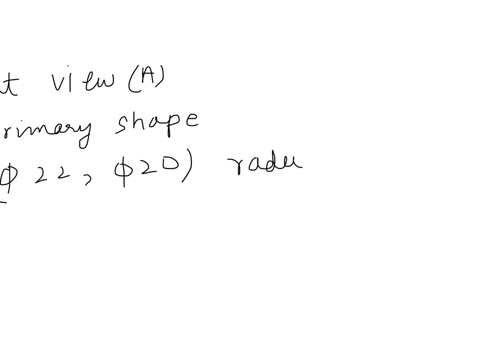 t view (A)
rimary shape
φ 22, φ20) radu